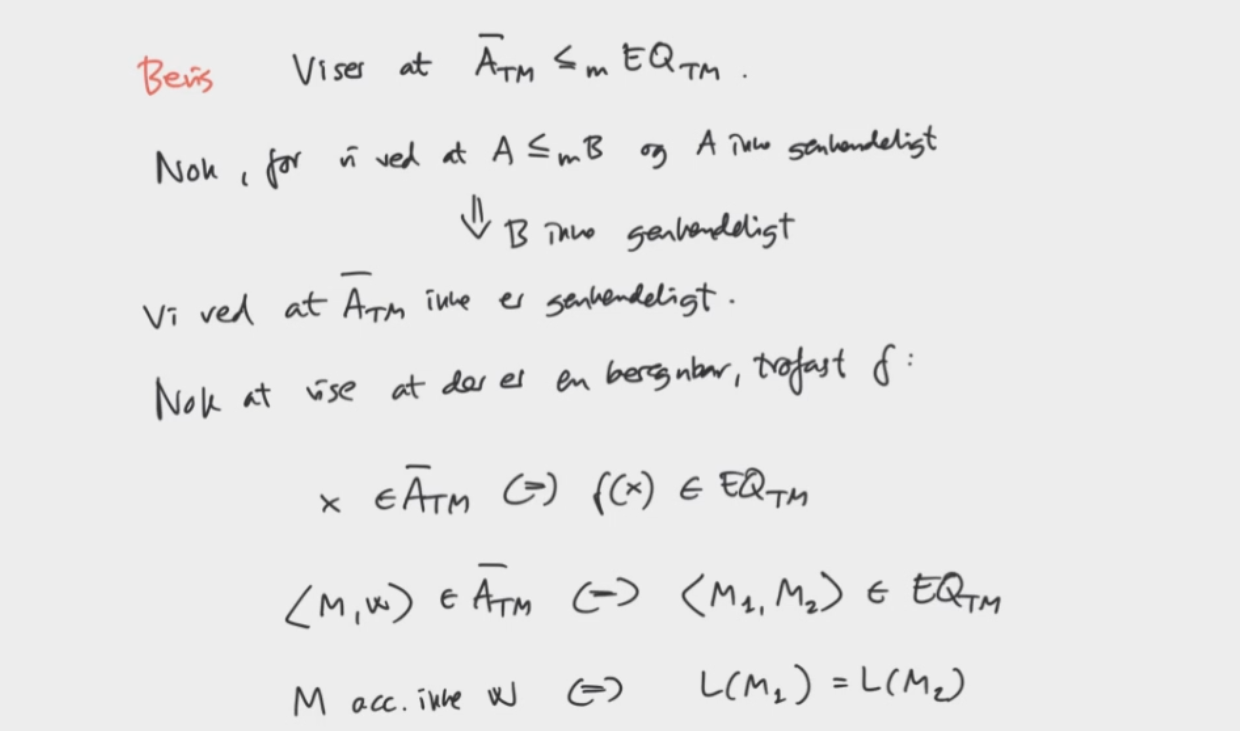 Bevis Viser at A̅_TM ≤_m EQ_TM .
Nok, for vi ved at A ≤_m B og A ikke genkendeligt
⇓ B ikke genkendeligt
Vi ved at A̅_TM ikke er genkendeligt.
Nok at vise at der er en beregnbar, trofast f :
x ∈ A̅_TM ⇔ f(x) ∈ EQ_TM
⟨M,w⟩ ∈ A̅_TM ⇔ ⟨M_1, M_2⟩ ∈ EQ_TM
M acc. ikke w ⇔ L(M_1) = L(M_2)